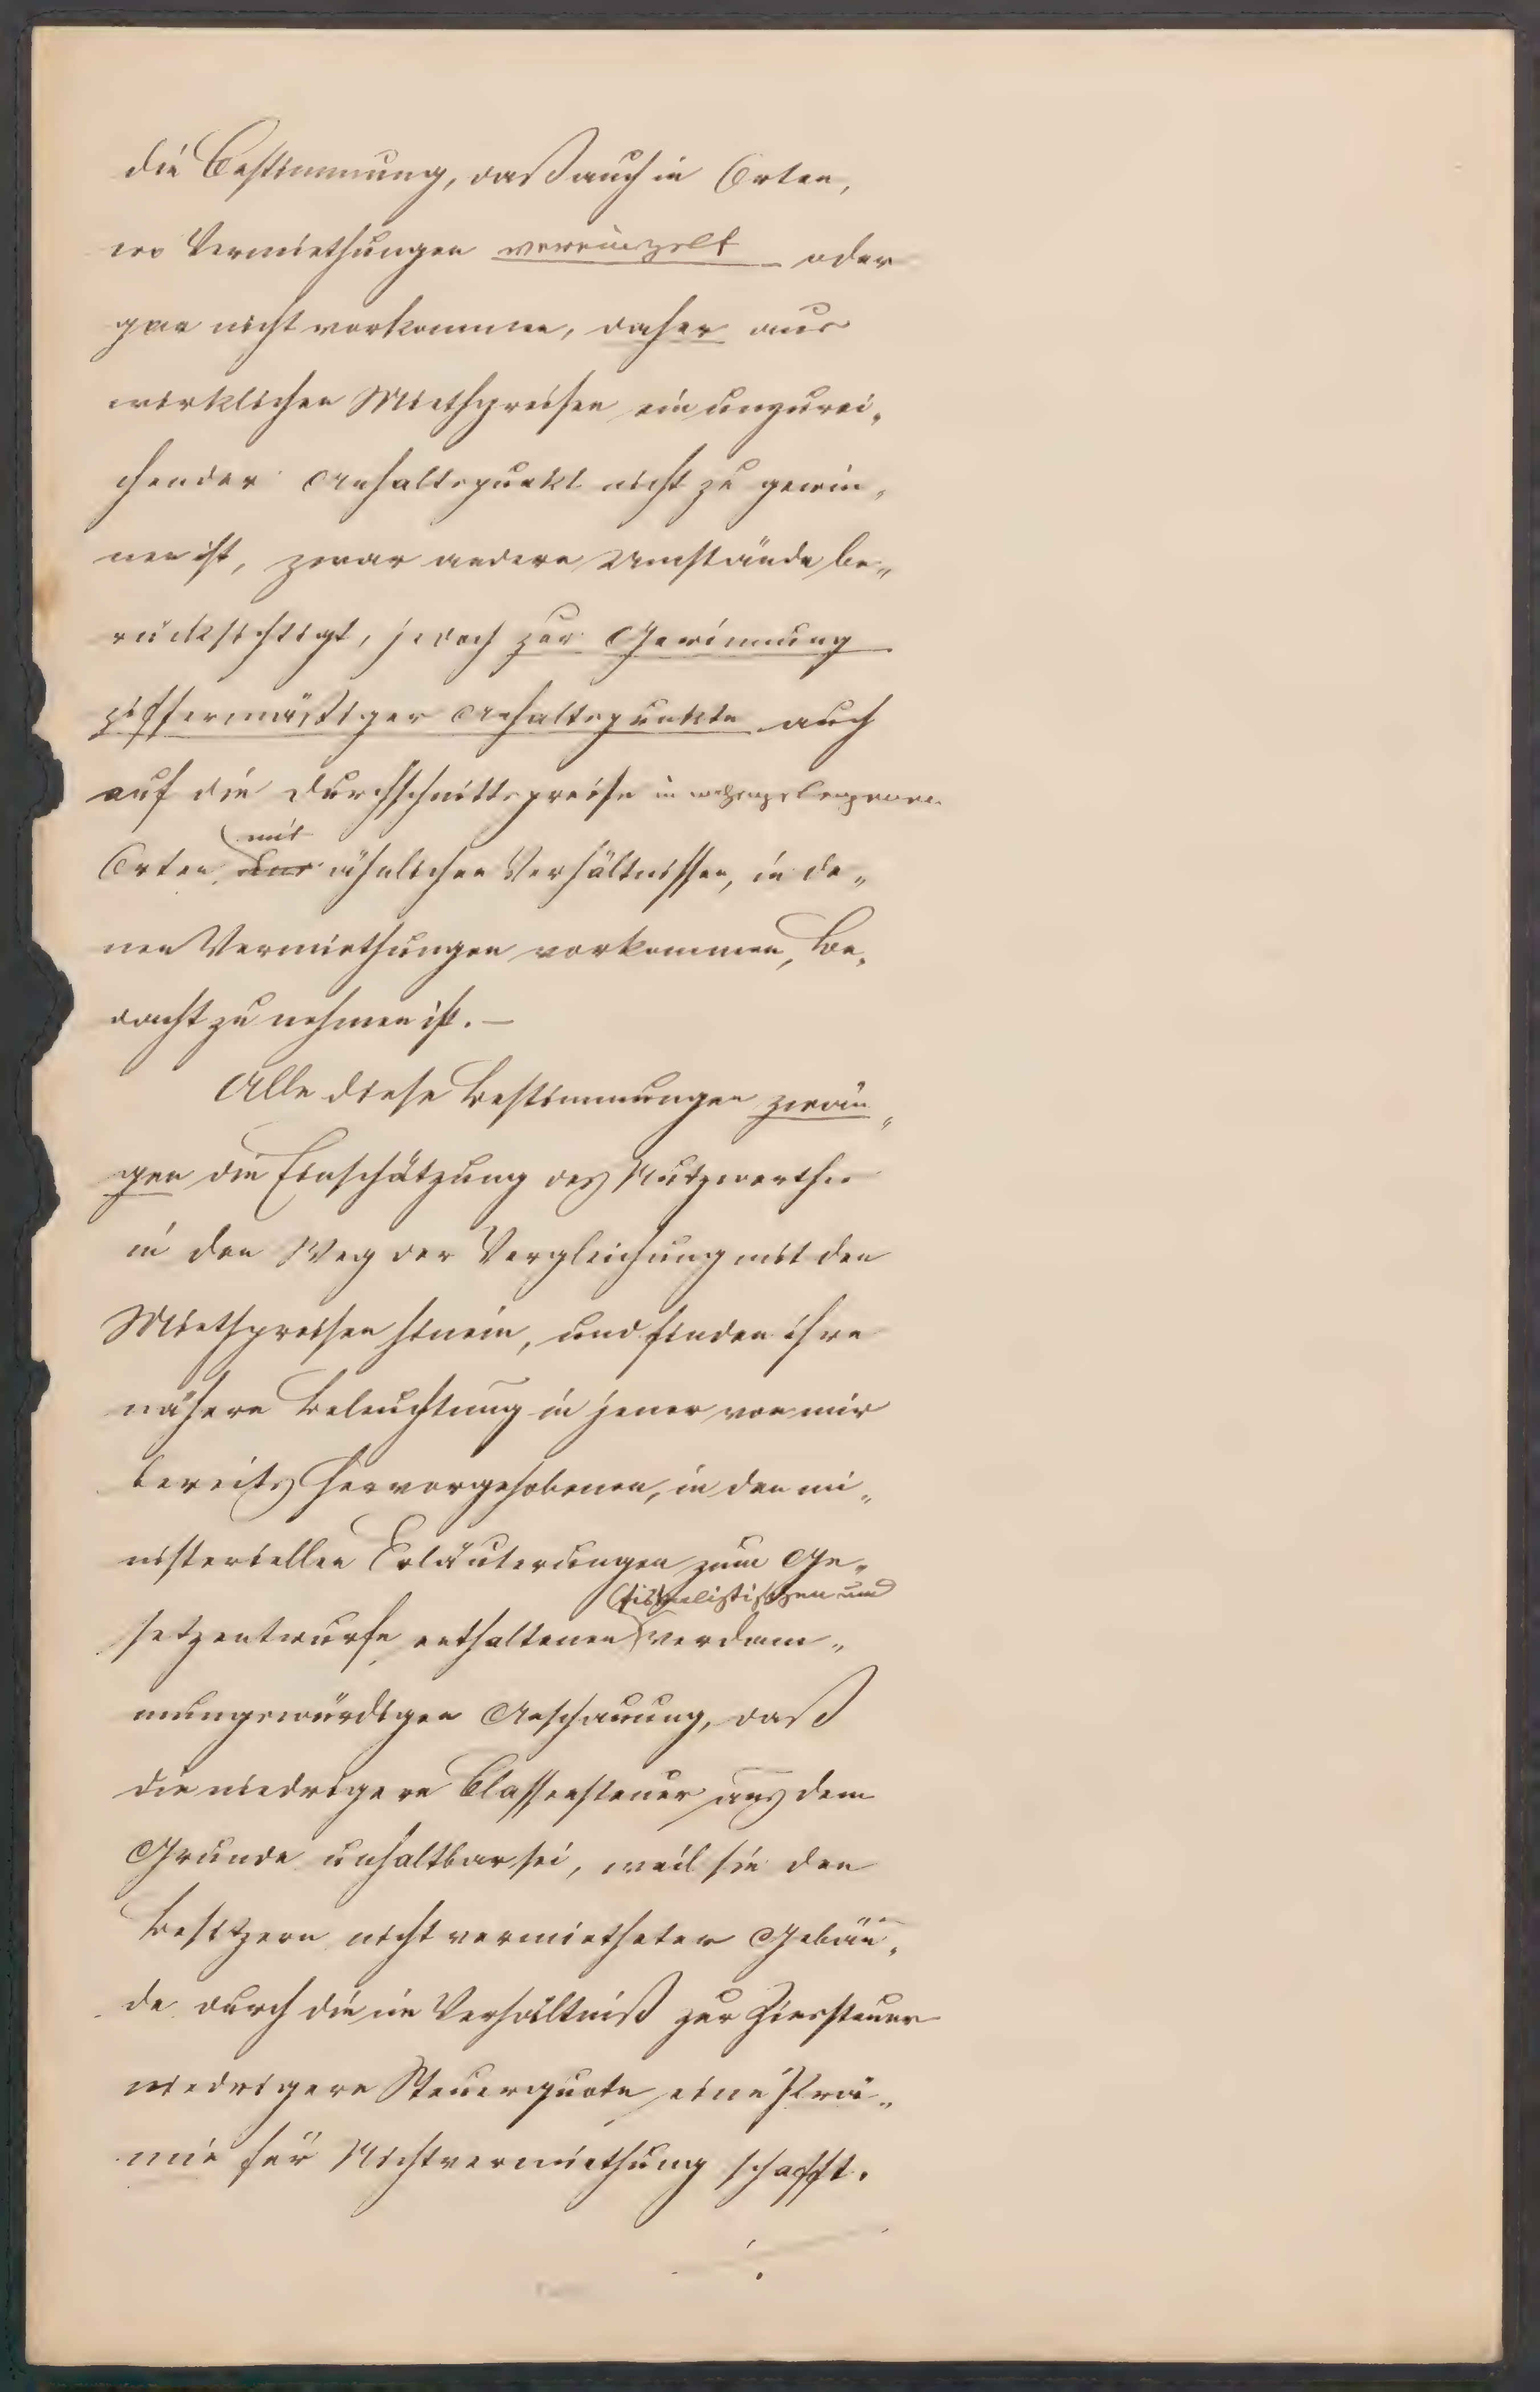 die Bestimmung, daß auch in Orten,
wo Vermiethungen vereinzelt oder
gar nicht vorkommen, daher aus
wirklichen Miethpreisen ein unzurei„
chender Anhaltspunkt nicht zu gewin„
nen ist, zwar andere Umstände be„
rücksichtigt, jedoch zur Gewinnung
ziffermäßiger Anhaltspunkte auch
auf die Durchschnittspreise in nahegelegenen
mit
Orten, ähnlichen Verhältnissen, in de„
nen Vermiethungen vorkommen, Be„
dacht zu nehmen ist. —
Alle diese Bestimmungen zwän„
gen die Einschätzung des Nutzwerthes
in den Weg der Vergleichung mit den
Miethpreisen hinein, und finden ihre
nähere Beleuchtung in jener von mir
bereits hervorgehobenen, in den mi„
nisteriellen Erläuterungen zum Ge„
fiskalistischen und
setzentwurfe enthaltenen verdam„
mungswürdigen Anschauung, daß
die niedrigere Classensteuer aus dem
Grunde unhaltbar sei, weil sie den
Besitzern nicht vermietheter Gebäu„
de durch die im Verhältniß zur Zinssteuer
niedrigere Steuerquote eine Prä„
mie für Nichtvermiethung schafft.
./.